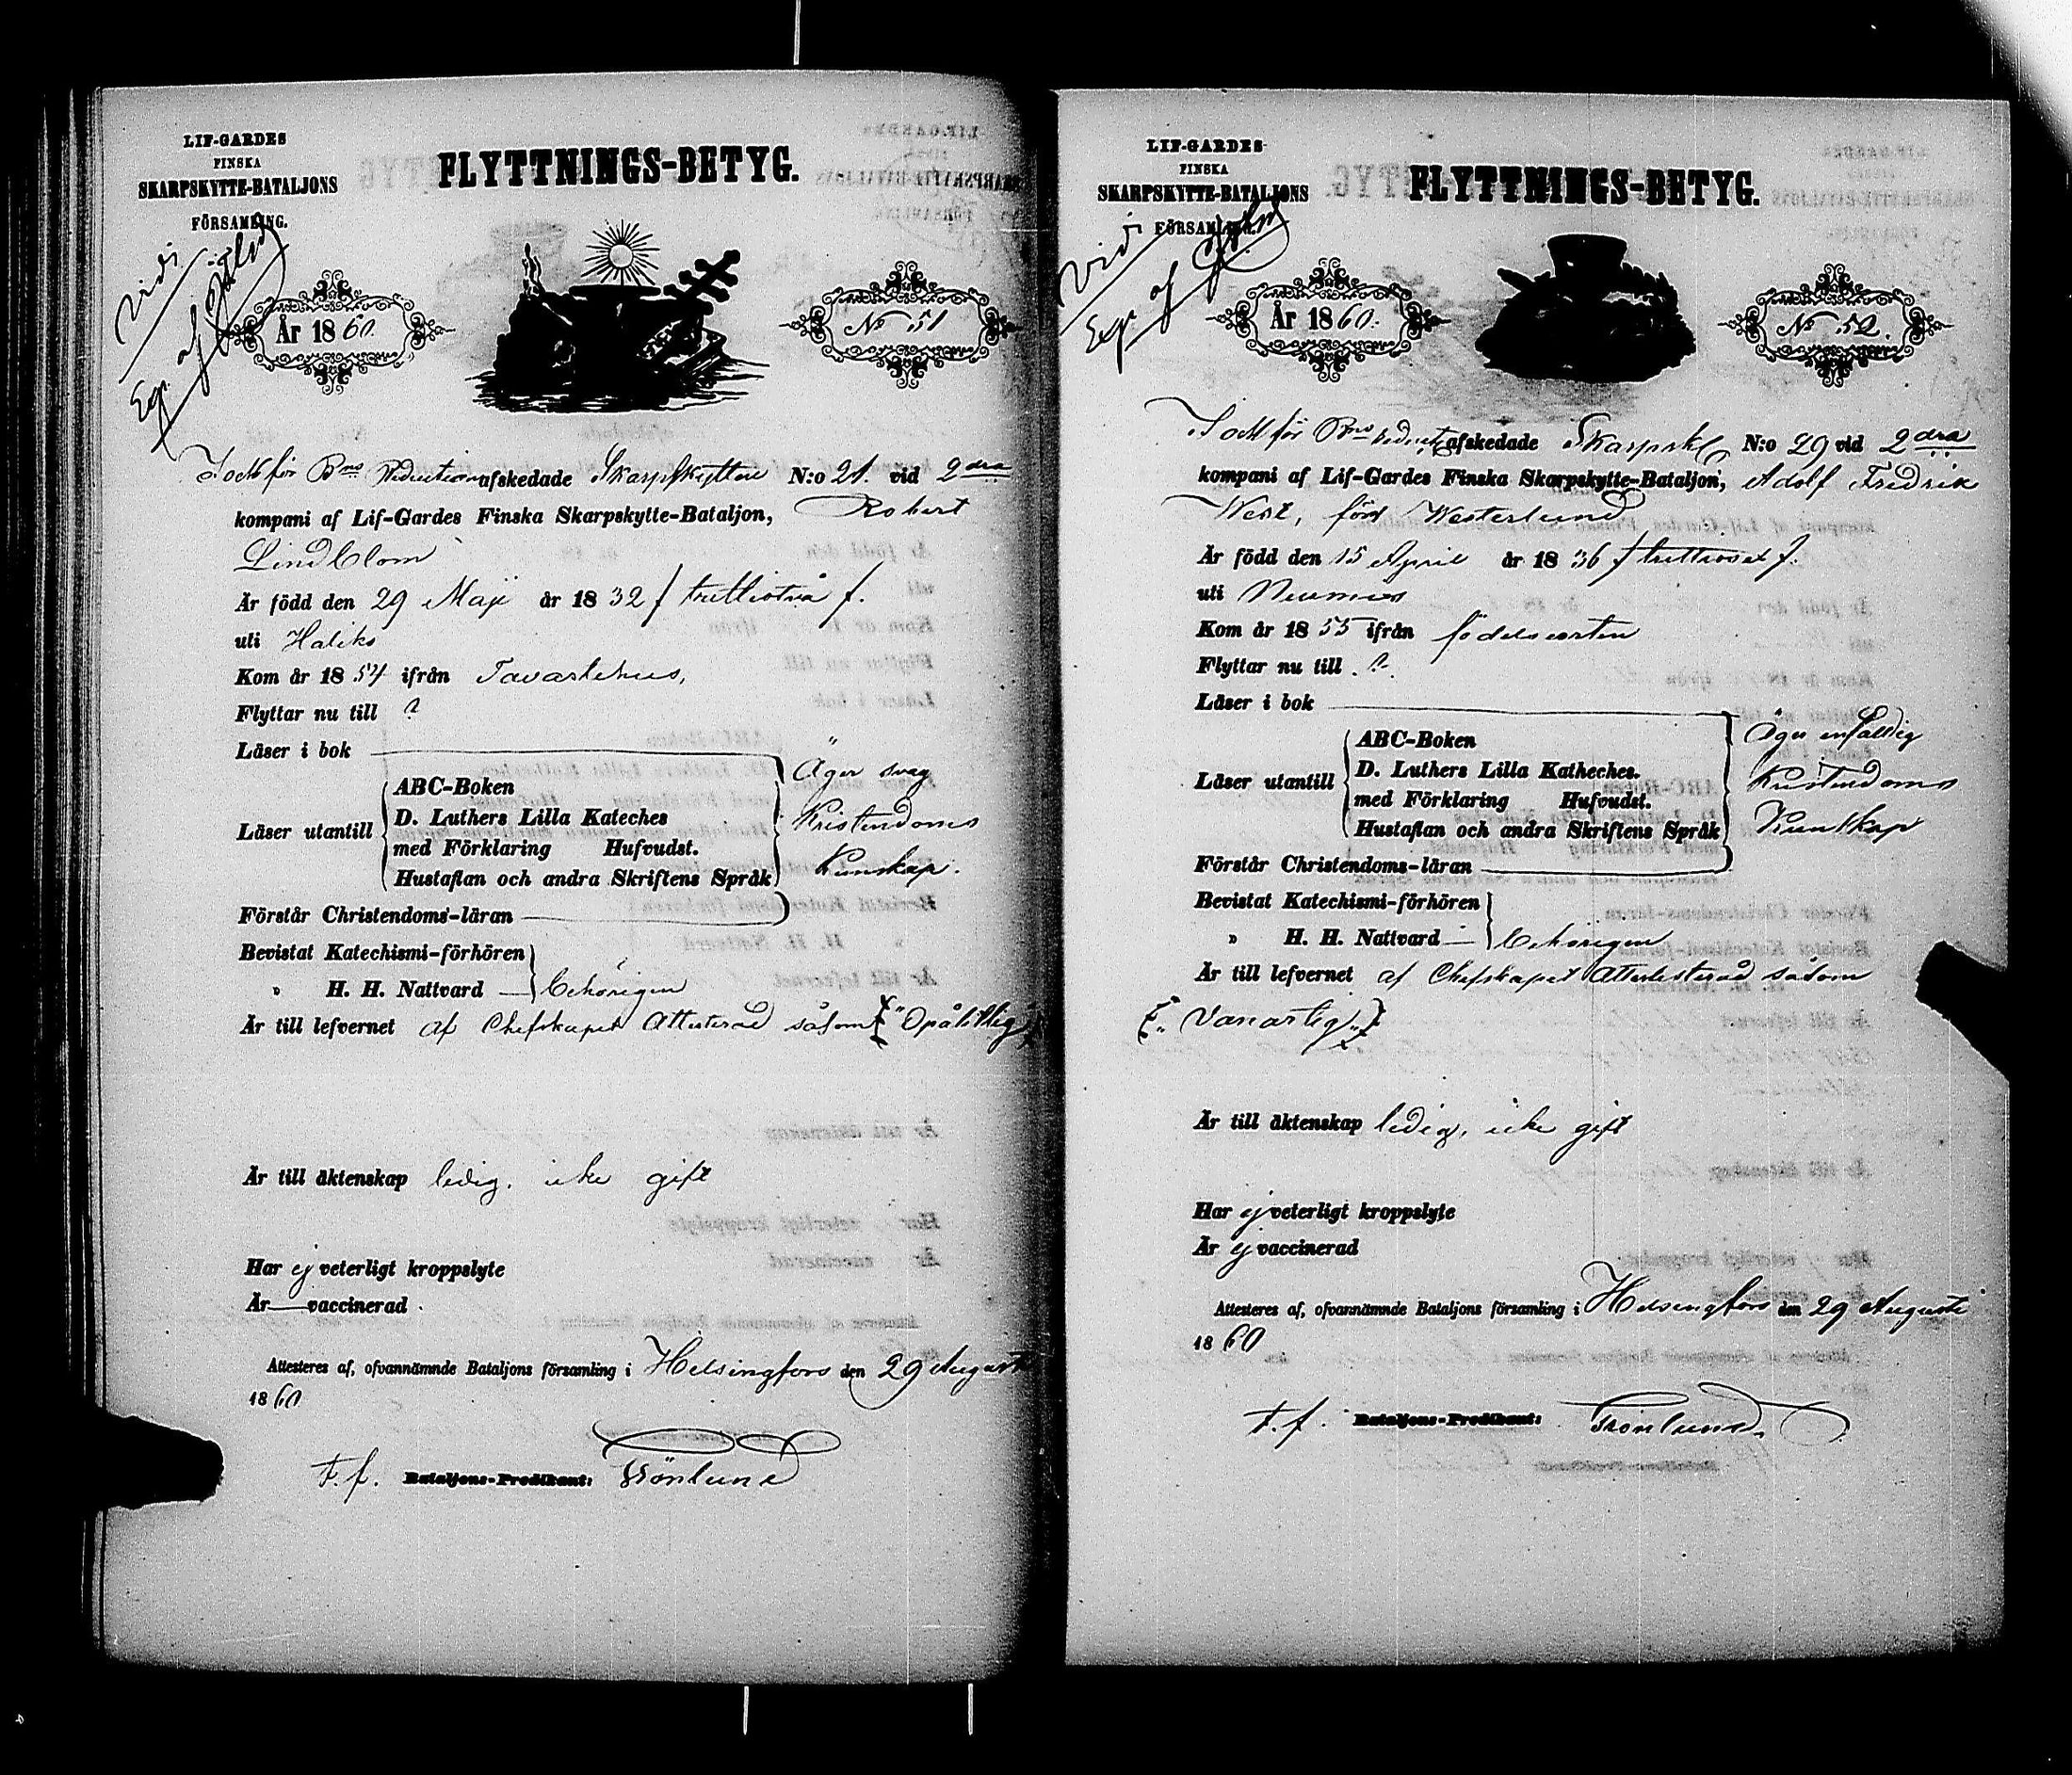 LIF-GARDES
FINSKA
SKARPSKYTTE-BATALJONS
FÖRSAMLING.
FLYTTNINGS-BETYG.
Vidi
År 1860.
No 51
för Bns Reduction afskedade Skarpskytten N:o 21. vid 2dra
kompani af Lif-Gardes Finska Skarpskytte-Bataljon, Robert
Lindblom
Är född den 29 Maji år 1832 / trettiotvå /.
uti Haliko
Kom år 1854 ifrån Tavastehus,
Flyttar nu till ?
Läser i bok
Läser utantill
ABC-Boken
D. Luthers Lilla Kateches
med Förklaring Hufvudst.
Hustaflan och andra Skriftens Språk
Äger svag
Kristendoms
Kunskap.
Förstår Christendoms-läran
Bevistat Katechismi-förhören
» H. H. Nattvard behörigen
Är till lefvernet af Chefskapet Attesterad såsom "Opålitlig"
Är till äktenskap ledig, icke gift
Har ej veterligt kroppslyte
Är — vaccinerad
Attesteres af, ofvannämnde Bataljons församling i Helsingfors den 29 Augusti
1860
T. f. Bataljons-Predikant: Grönlund
LIF-GARDES
FINSKA
SKARPSKYTTE-BATALJONS
FÖRSAMLING.
FLYTTNINGS-BETYG.
Vidi
År 1860.
No 52.
för Bns Reduct. afskedade Skarpsk. N:o 29 vid 2dra
kompani af Lif-Gardes Finska Skarpskytte-Bataljon, Adolf Fredrik
West, född Westerlund
Är född den 15 April år 1836 / trettiosex /.
uti Neumis
Kom år 1855 ifrån födelseorten
Flyttar nu till ?
Läser i bok
Läser utantill
ABC-Boken
D. Luthers Lilla Katheches.
med Förklaring Hufvudst.
Hustaflan och andra Skriftens Språk
Äger enfaldig
Kristendoms
Kunskap
Förstår Christendoms-läran
Bevistat Katechismi-förhören
» H. H. Nattvard behörigen
Är till lefvernet af Chefskapet Attesterad såsom
"Vanartig"
Är till äktenskap ledig, icke gift
Har ej veterligt kroppslyte
Är ej vaccinerad
Attesteres af, ofvannämnde Bataljons församling i Helsingfors den 29 Augusti
1860
T. f. Bataljons-Predikant: Grönlund